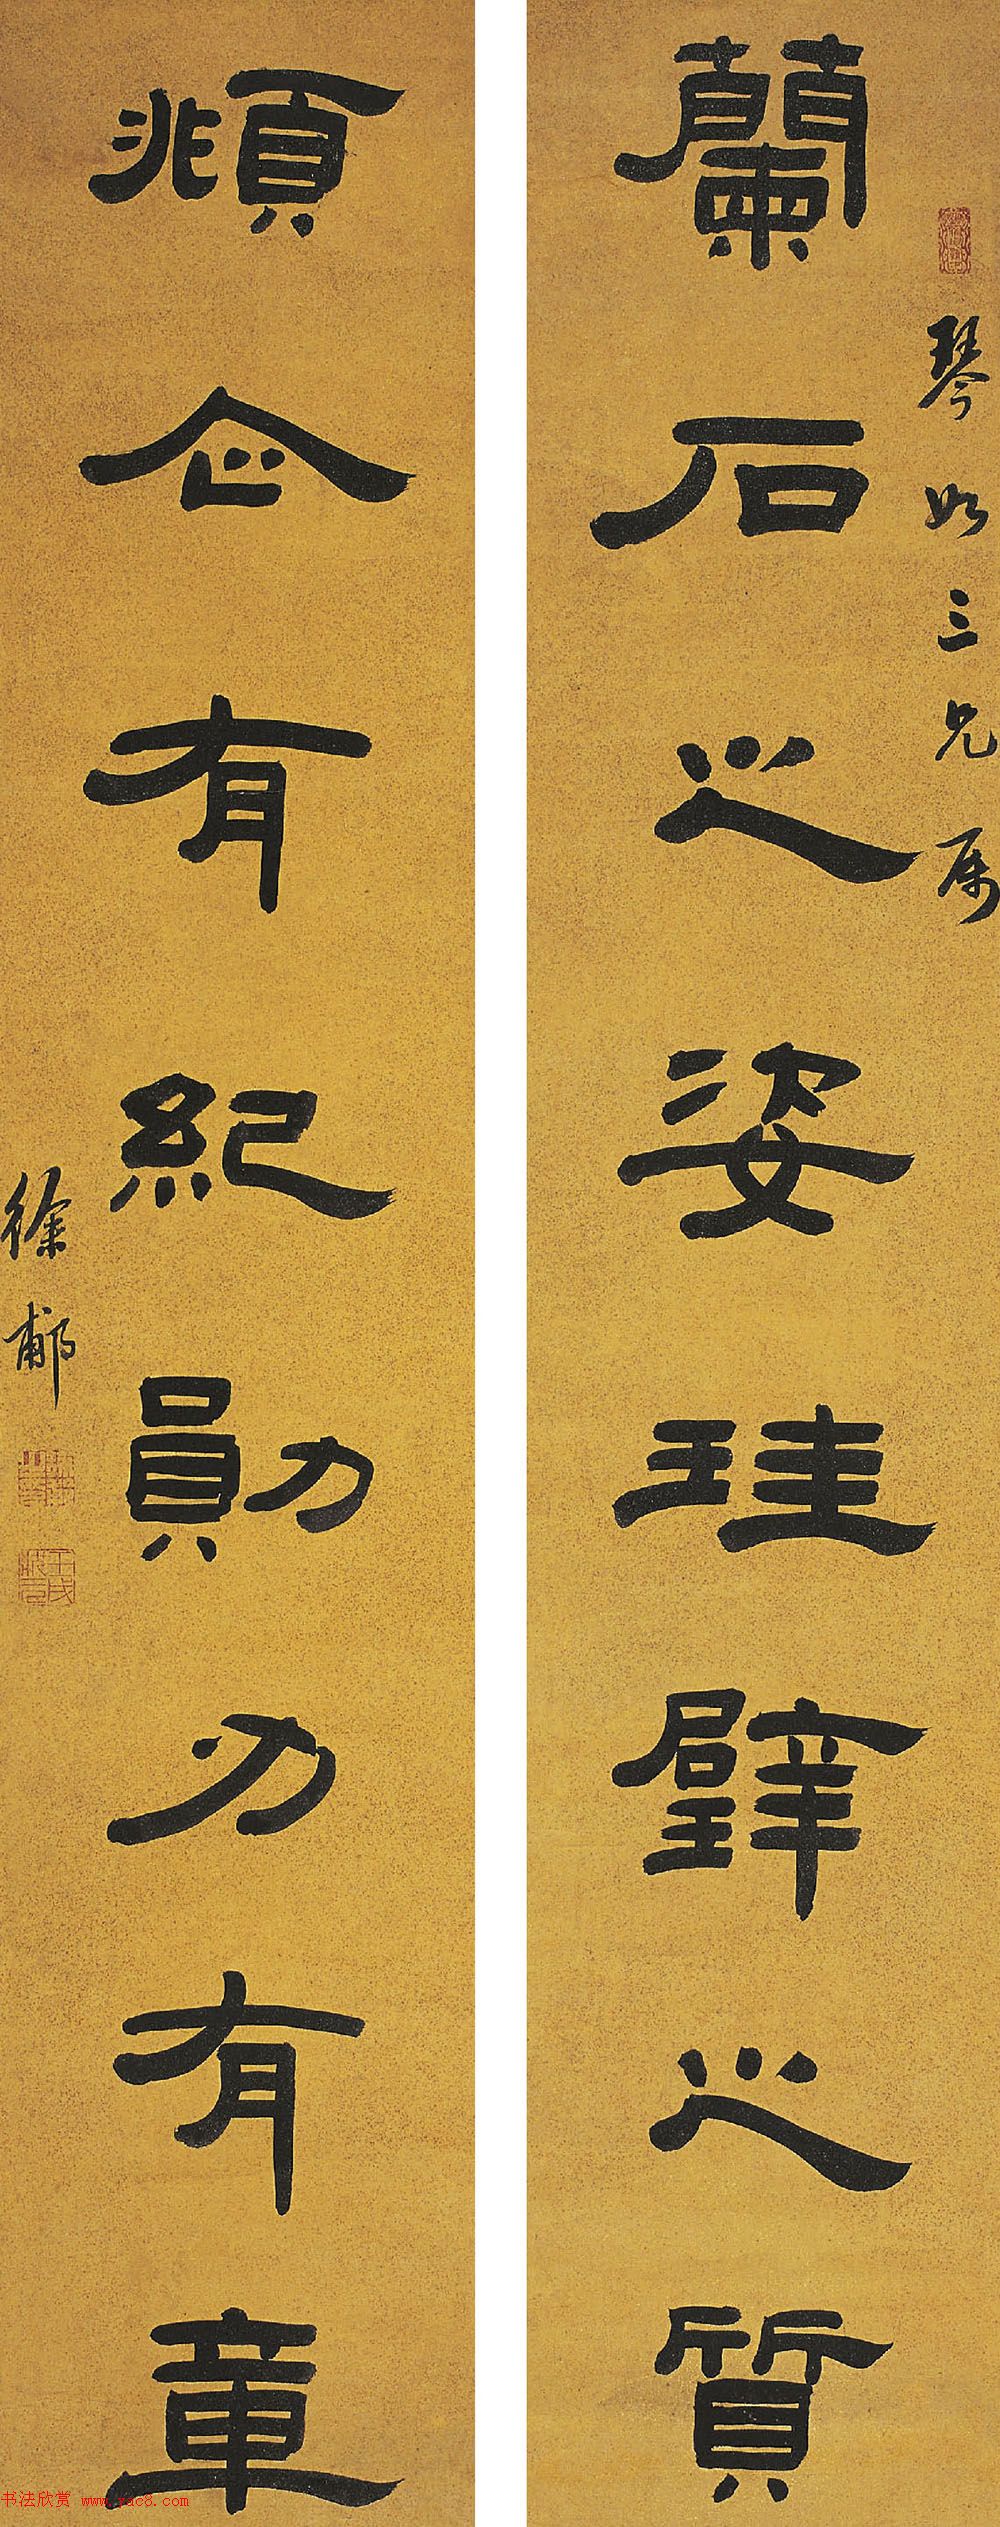 琴如三兄属
蘭石之姿珪璧之質
頫企有紀勛有章
徐郙
壬戌狀元
书法欣赏 www.yac8.com